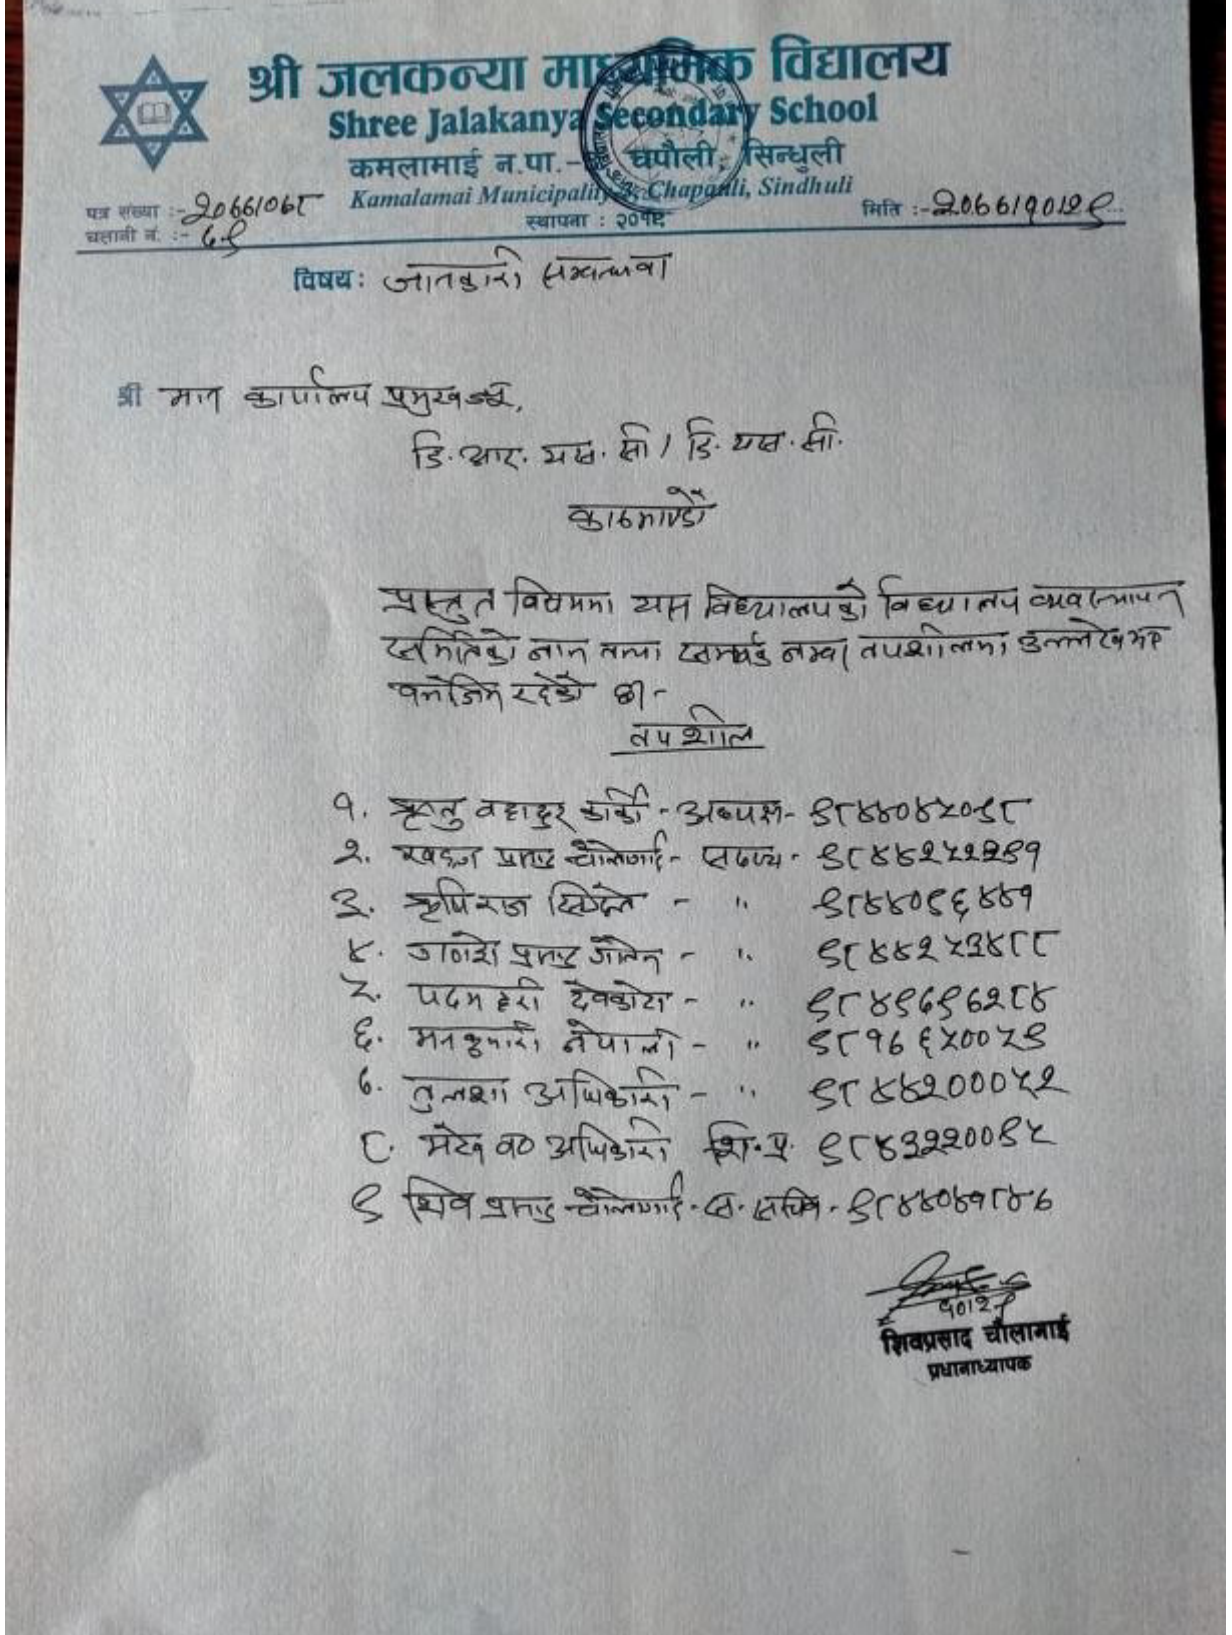 श्री जलकन्या माध्यमिक विद्यालय
Shree Jalakanya Secondary School
कमलामाई न.पा.- चपौली, सिन्धुली
Kamalamai Municipality-3, Chapauli, Sindhuli
पत्र संख्या :- २०७७/०७८
मिति :- २०७७/१०/२९
स्थापना : २०१८
चलानी नं. :- ७९
विषय: जानकारी सम्वन्धमा
श्री मान कार्यालय प्रमुखज्यू,
डि. आर. यस. सी / डि. यस. सी.
काठमाण्डौं
प्रस्तुत विषयमा यस विद्यालयको विद्यालय व्यवस्थापन
समितिको नाम तथा सम्पर्क नम्वर तपशीलमा उल्लेख भए
वमोजिम रहेको छ।-
तपशील
१. ऋतु वहादुर कार्की - अध्यक्ष - ९८४४०४५०९८
२. प्रसाद चौलागाई - सदस्य - ९८४४२५२२९१
३. ऋषिराज - " ९८४४०९६४४१
४. प्रसाद - " ९८४४२५३४८८
५. पदम हरी देवकोटा - " ९८४९७९७२८४
६. मनकुमारी नेपाली - " ९८१७६५००५९
७. तुलशा अधिकारी - " ९८४४२०००५२
८. व० अधिकारी शि.प्र. ९८४३२२००९५
९ शिव प्रसाद चौलागाई - स. सचिव - ९८४४०७१८४७
१०/२९
शिवप्रसाद चौलागाई
प्रधानाध्यापक